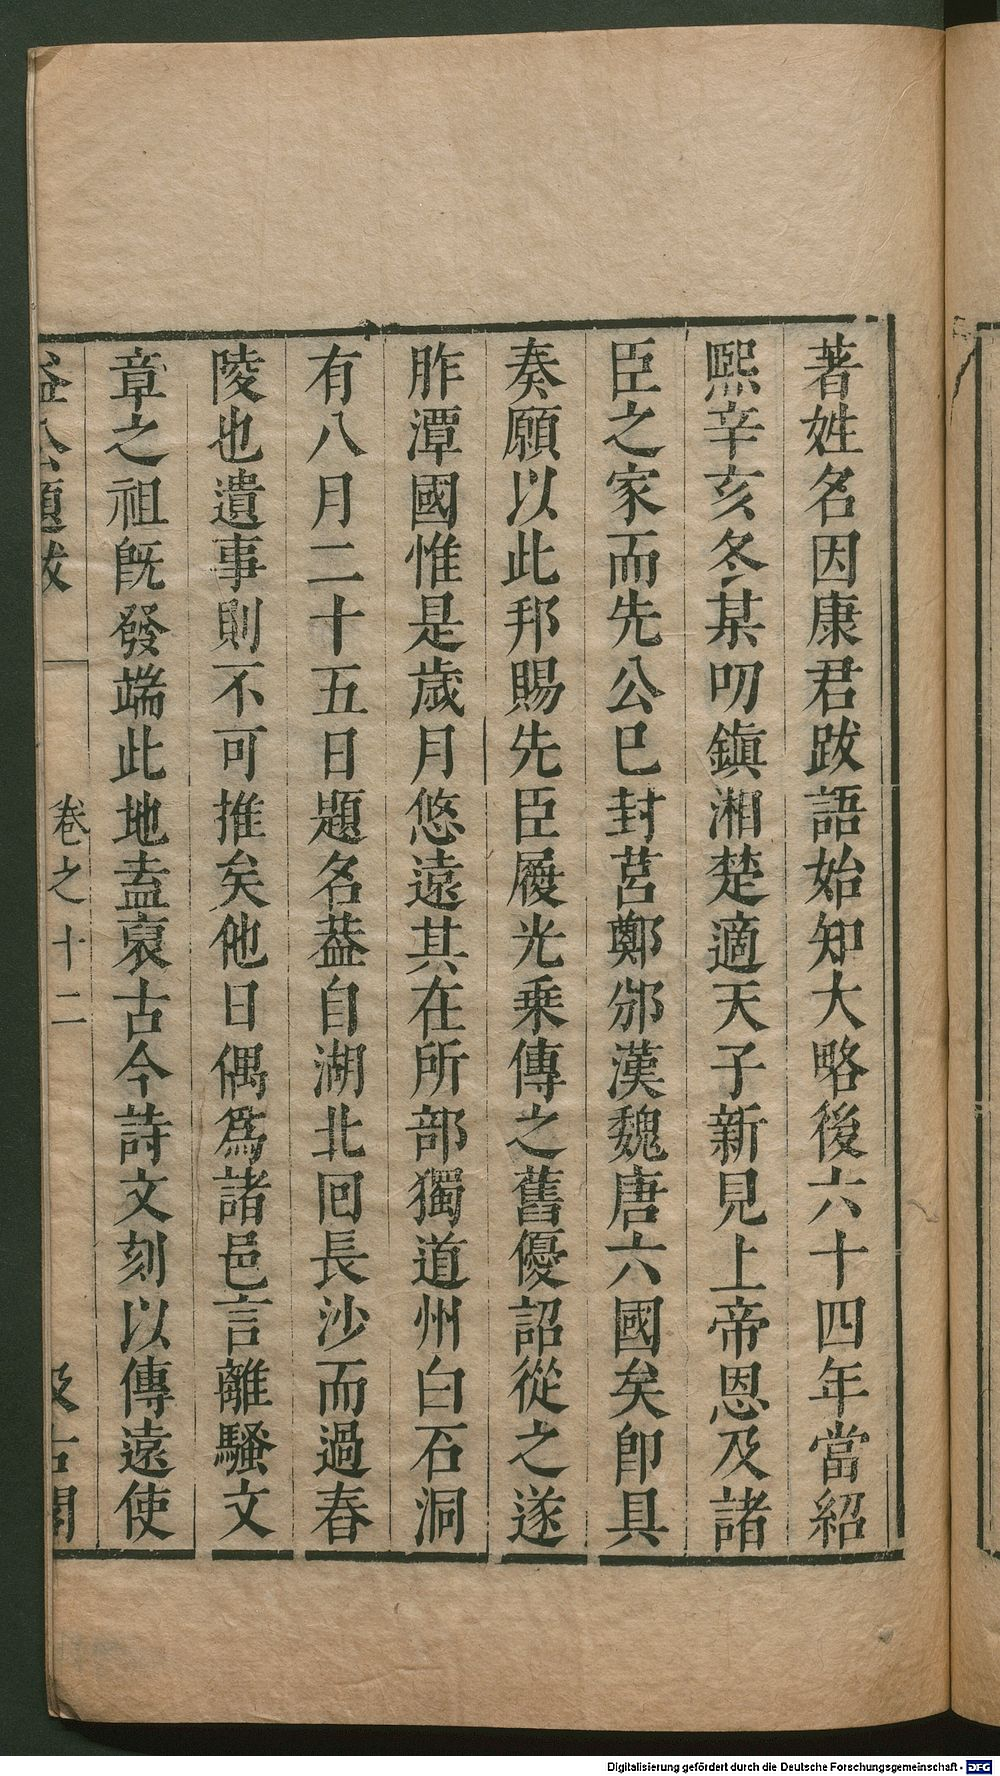 著姓名因康君跋語始知大略後六十四年當紹
熙辛亥冬某叨鎭湘楚適天子新見上帝恩及諸
臣之家而先公已封莒鄭邠漢魏唐六國矣卽具
奏願以此邦賜先臣履光乗傳之舊優詔從之遂
胙潭國惟是歲月悠遠其在所部獨道州白石洞
有八月二十五日題名葢自湖北回長沙而過春
陵也遺事則不可推矣他日偶爲諸邑言離騷文
章之祖旣發端此地盍裒古今詩文刻以傳遠使
益公題跋 卷之十二 汲古閣
Digitalisierung gefördert durch die Deutsche Forschungsgemeinschaft - DFG